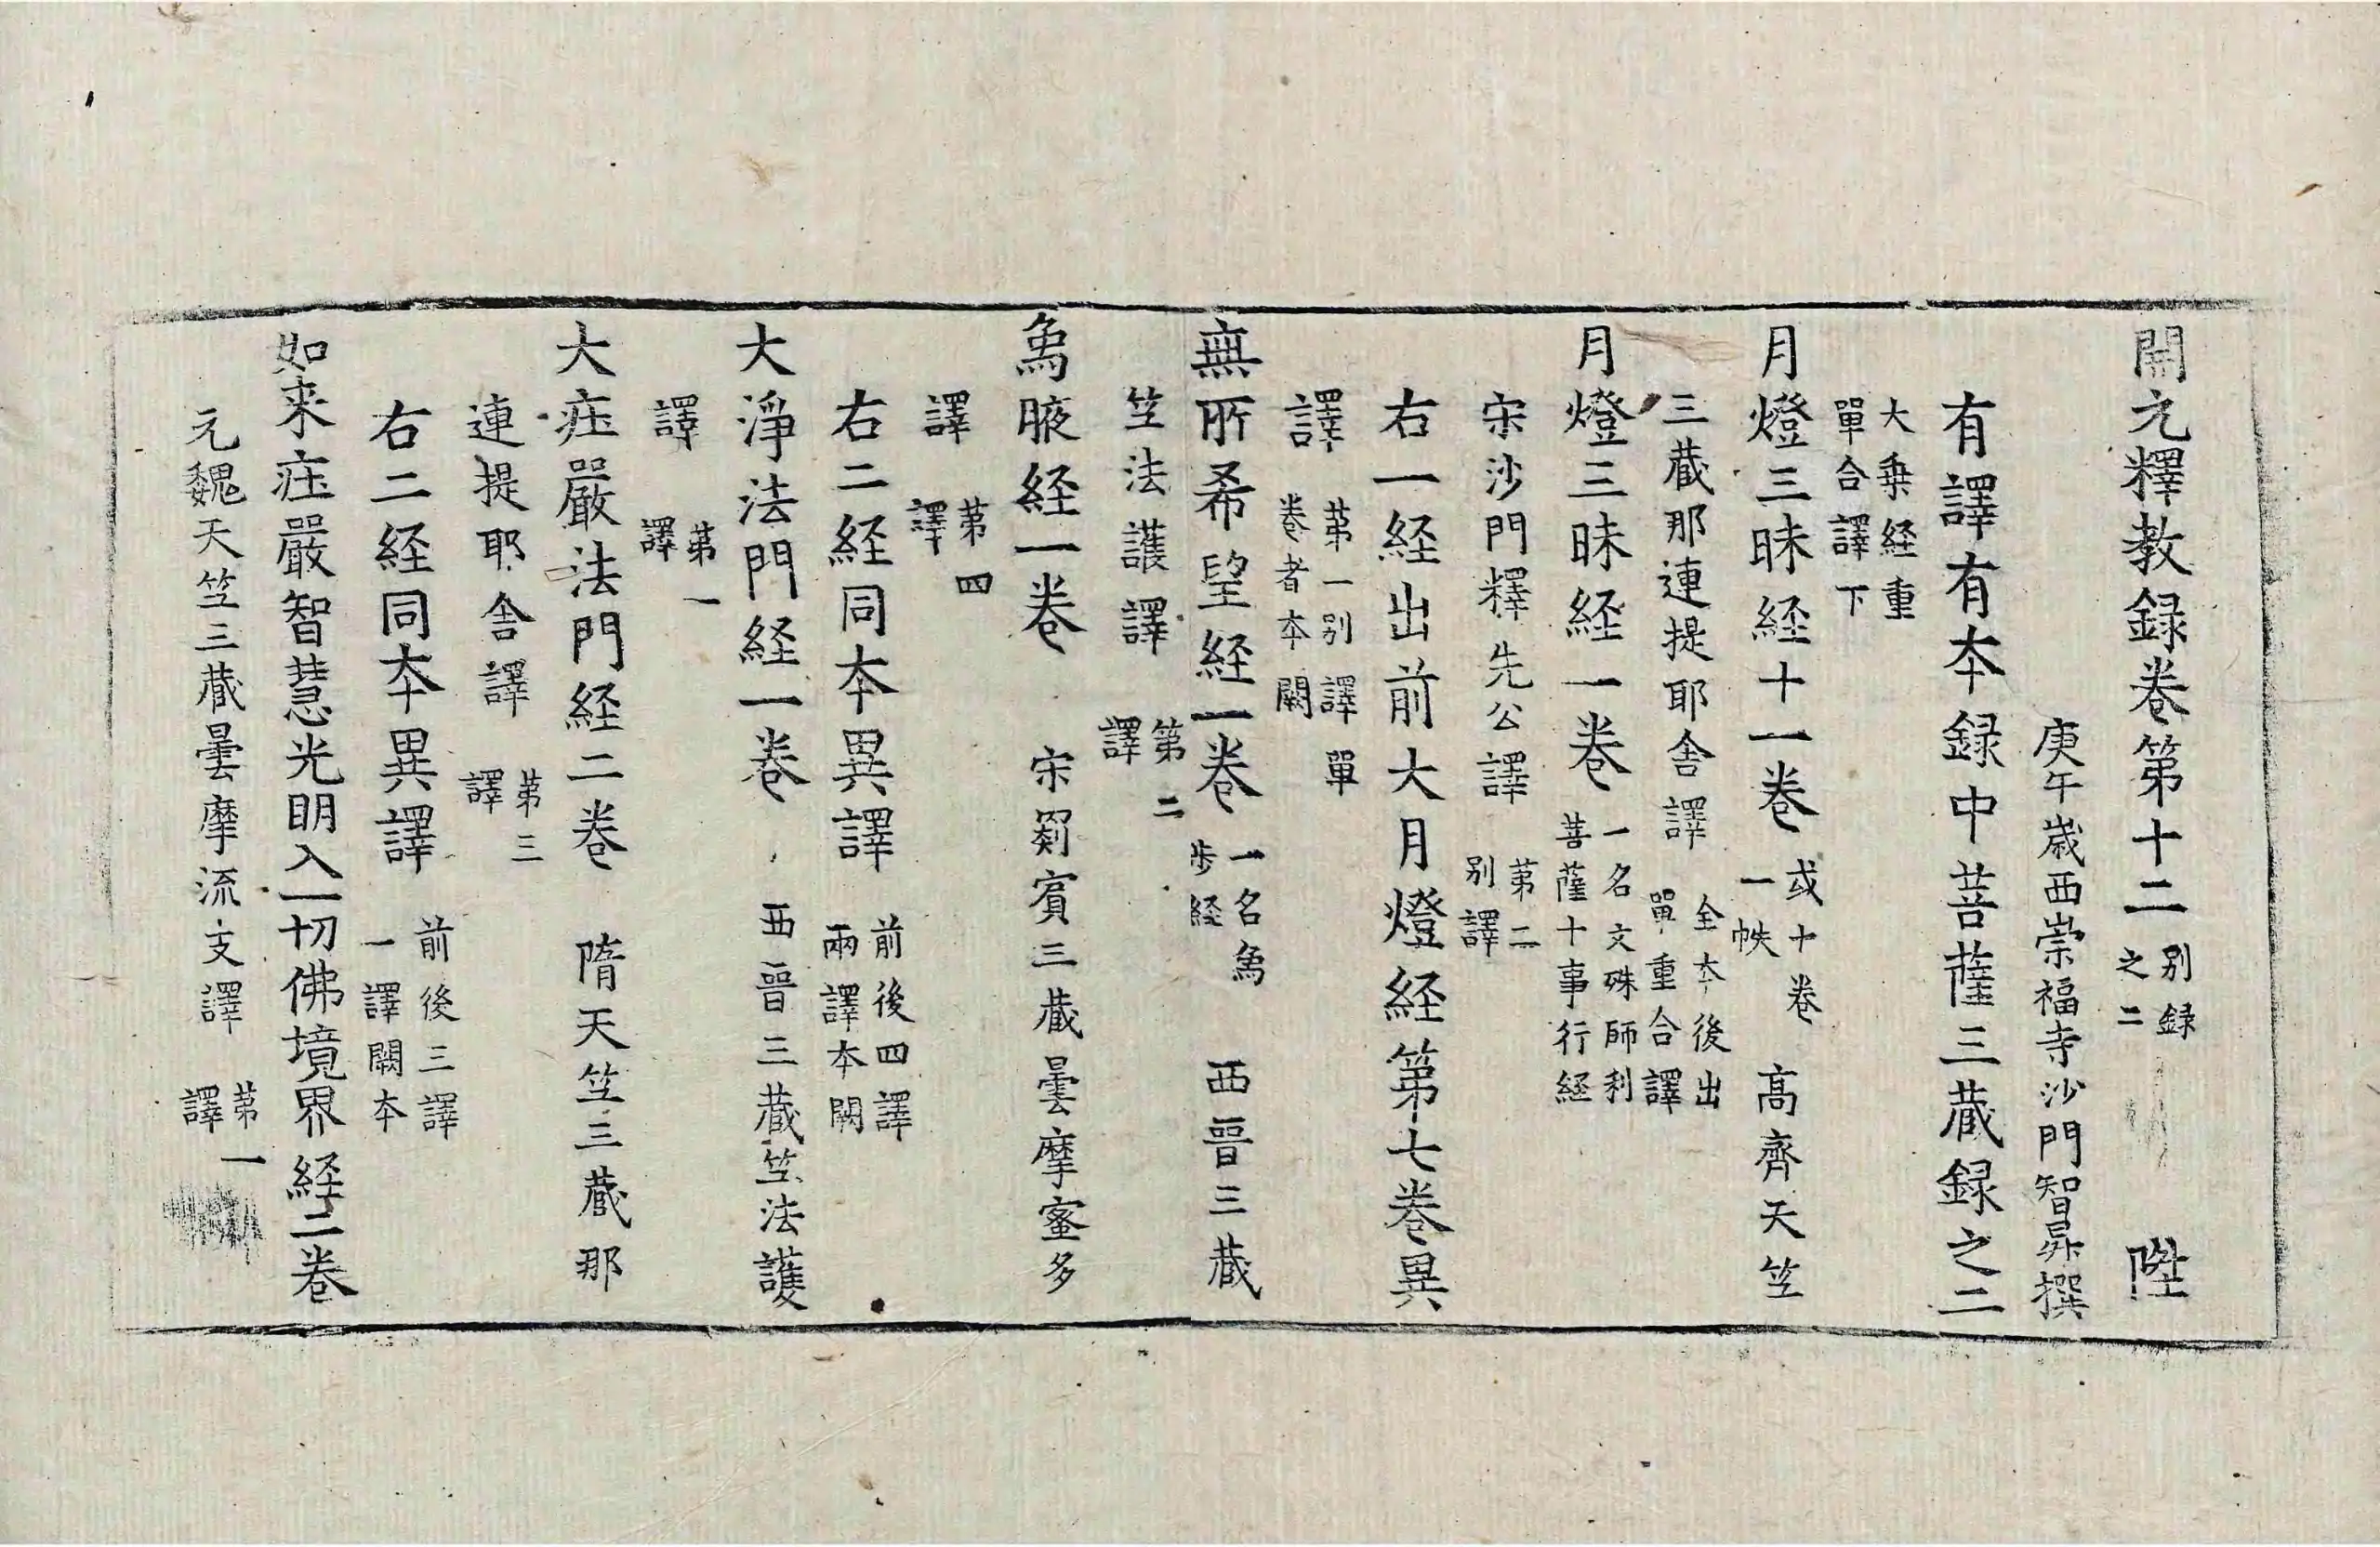 開元釋教録卷第十二 别録之二 陛
庚午歳西崇福寺沙門智昇撰
有譯有夲録中菩薩三蔵録之二
大乗経重單合譯下
月燈三昧経十一卷 或十卷一帙 高齊天竺
三蔵那連提耶舎譯 全夲後出單重合譯
月燈三昧経一卷 一名文殊師利菩薩十事行経
宋沙門釋先公譯 苐二别譯
右一経出前大月燈経第七卷異
譯 苐一别譯單卷者夲闕
無所希望経一卷 一名𤉢歩経 西晉三蔵
竺法護譯 第二譯
𤉢腋経一卷 宋罽賓三蔵曇摩蜜多
譯 苐四譯
右二経同夲異譯 前後四譯兩譯夲闕
大淨法門経一卷 西晉三蔵竺法護
譯 苐一譯
大疘嚴法門経二卷 隋天竺三蔵那
連提耶舎譯 苐三譯
右二経同夲異譯 前後三譯一譯闕夲
如来疘嚴智慧光明入一切佛境界経二卷
元魏天竺三蔵曇摩流支譯 苐一譯